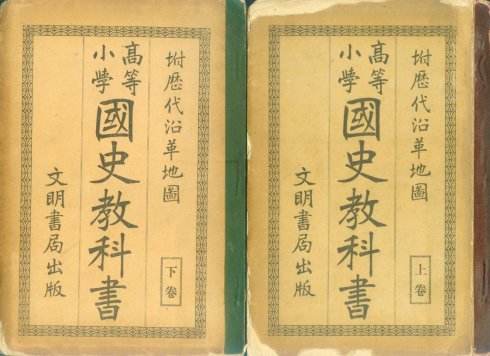 附歷代沿革地圖
高等
小學
國史教科書
下卷
文明書局出版
附歷代沿革地圖
高等
小學
國史教科書
上卷
文明書局出版